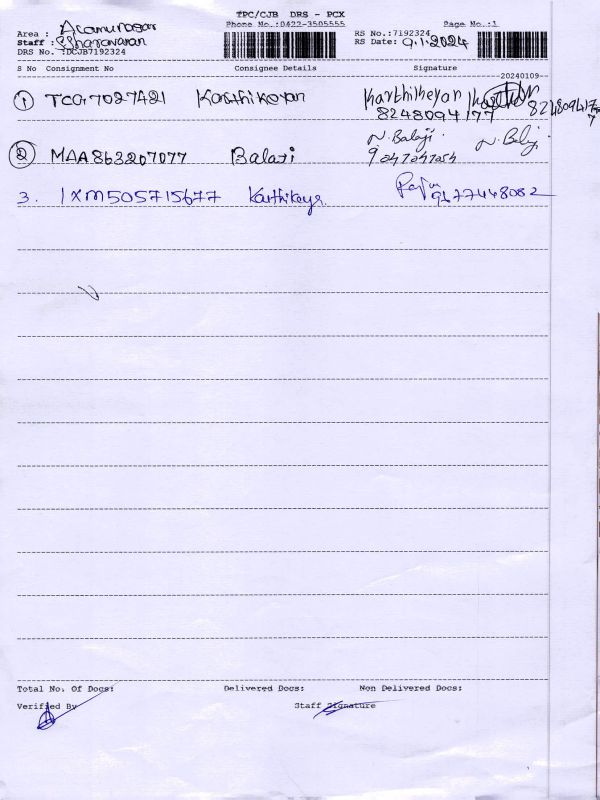 TPC/CJB DRS - PCX
Phone No.:0422-3505555 Page No.:1
Area :
Staff :
RS No.:7192324
DRS No. :DCJB7192324
RS Date: 9.1.2024
S No Consignment No Consignee Details Signature
20240109
1 Karthikeyan Karthikeyan
8248094177 8248094177
2 MAA863207077 Balaji N. Balaji N. Balaji
3. IXM505715677 Karthikeya
9177448082
Total No. Of Docs: Delivered Docs: Non Delivered Docs:
Verified By Staff Signature